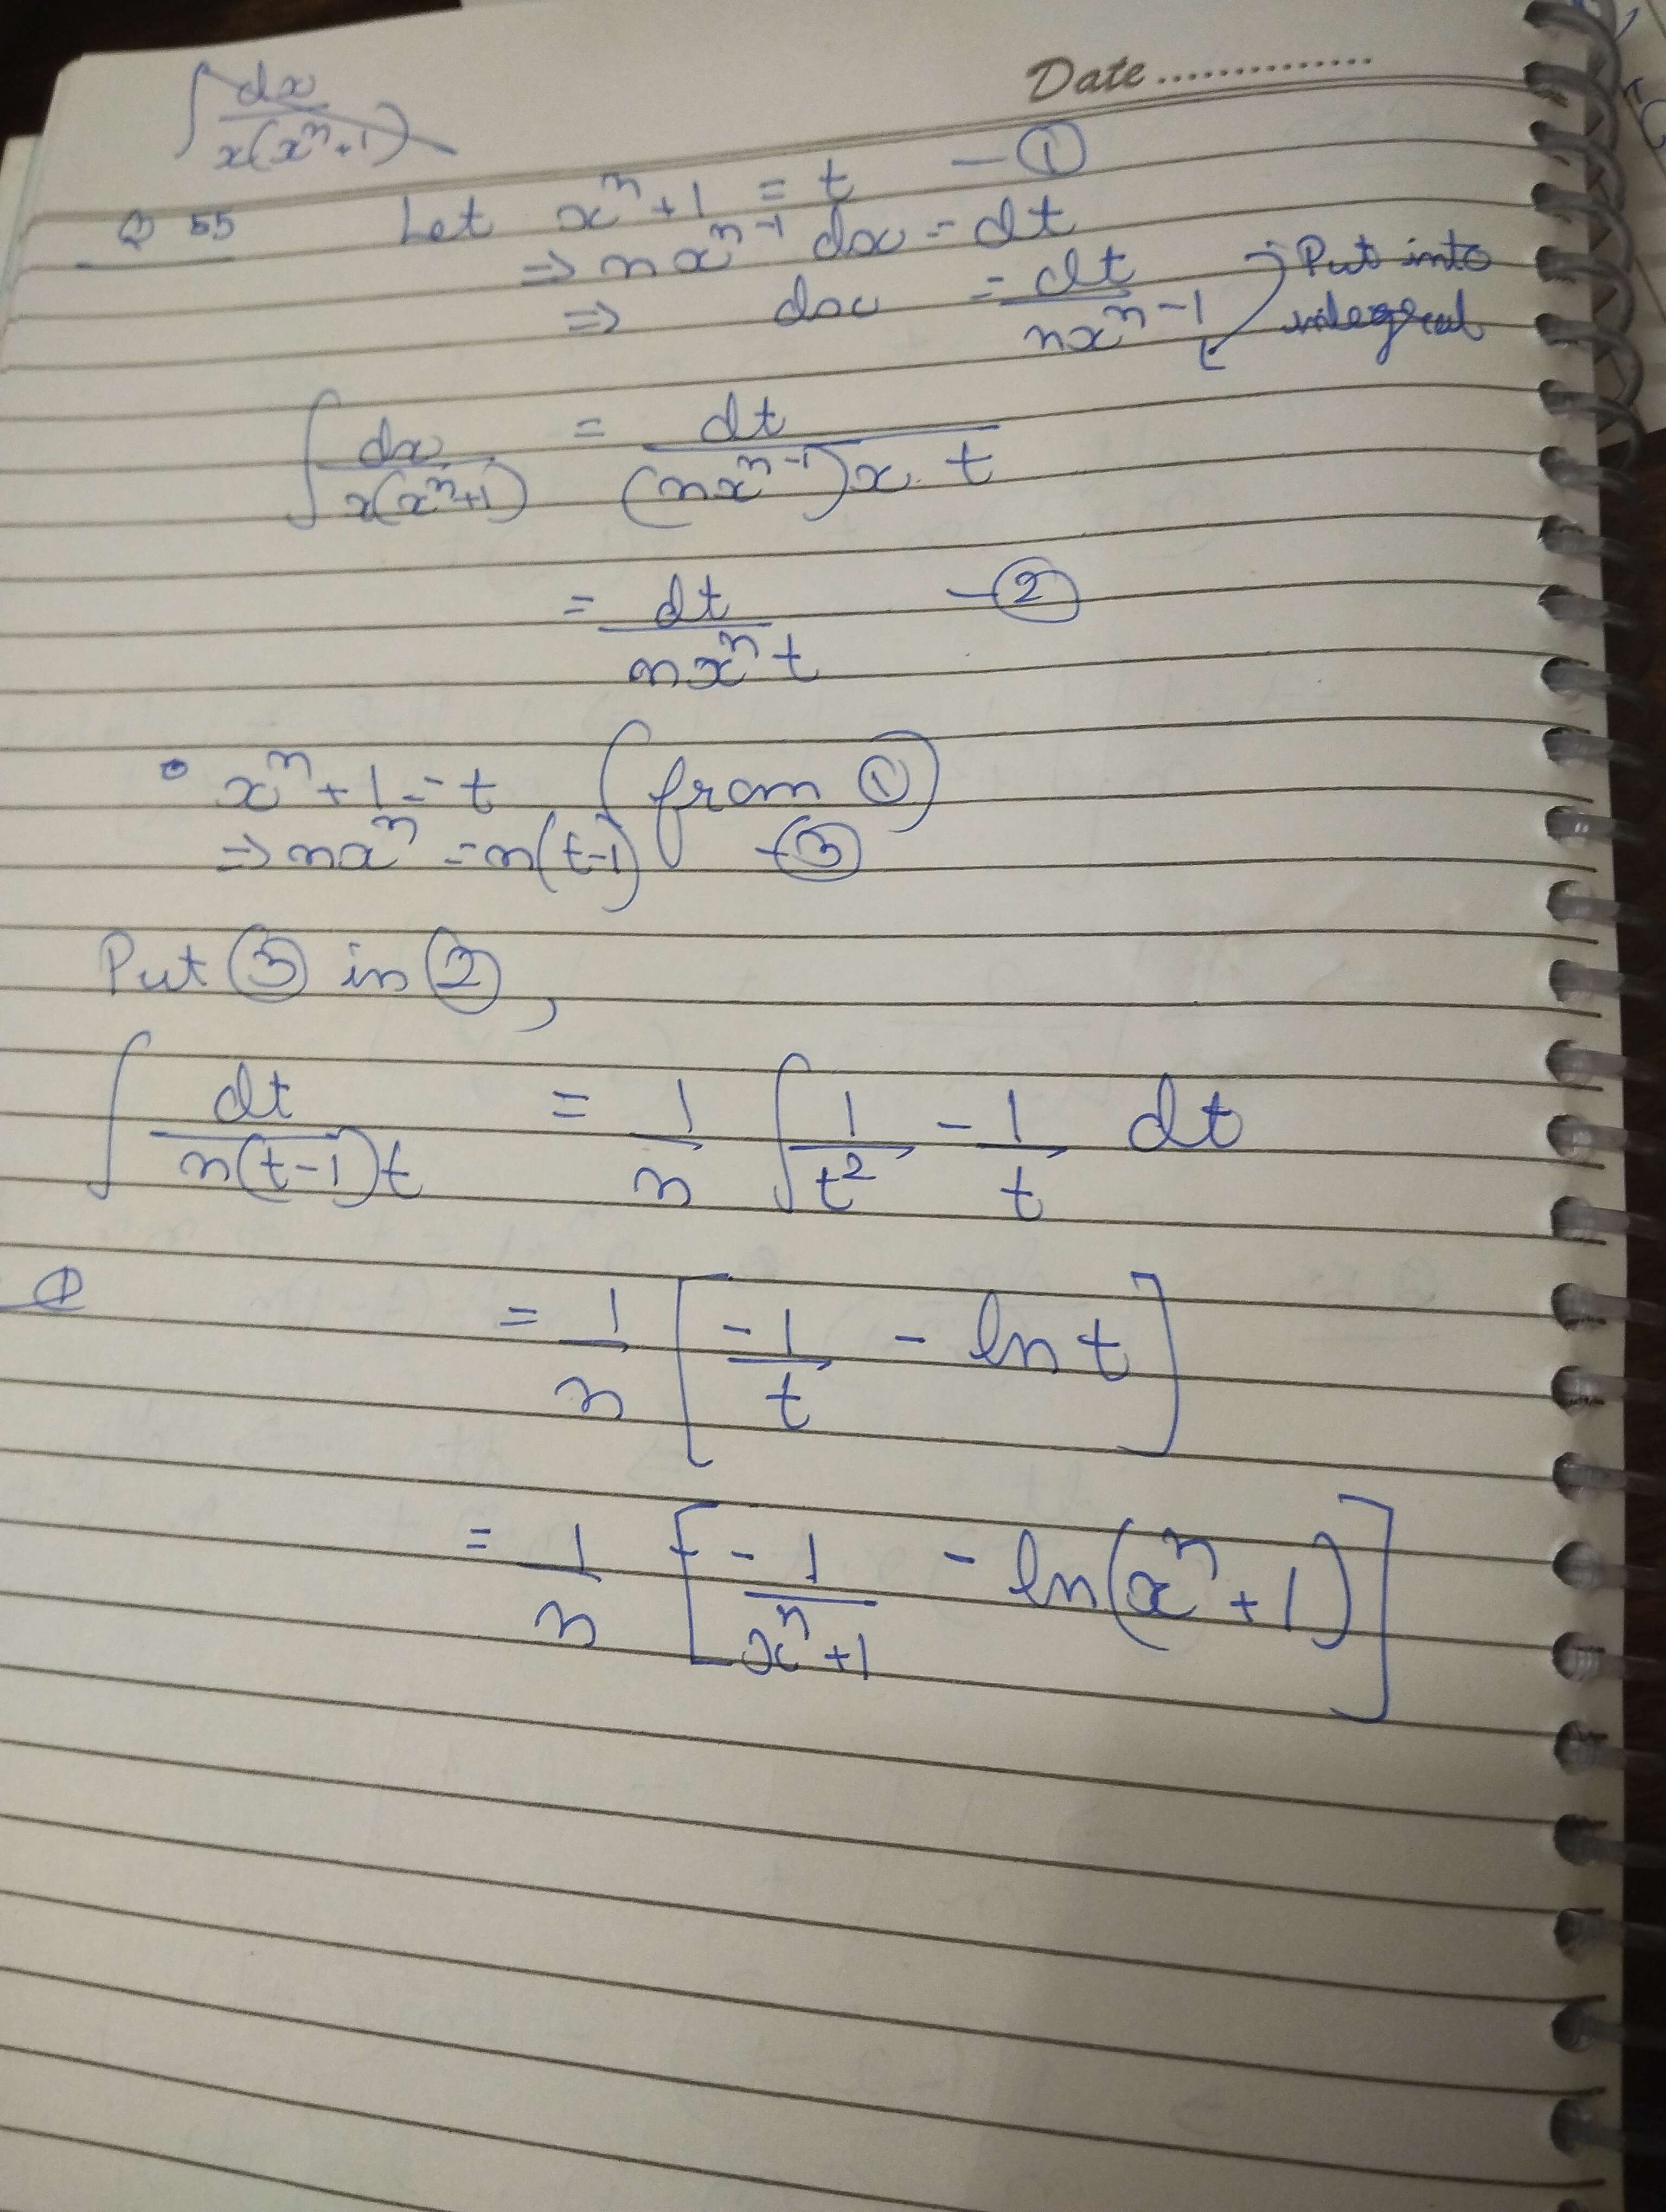 Date ..............
∫ dx / x(xⁿ+1)
Q 55 Let xⁿ+1 = t — ①
⇒ nxⁿ⁻¹ dx = dt
⇒ dx = dt / nxⁿ⁻¹ → Put into integral
∫ dx / x(xⁿ+1) = dt / (nxⁿ⁻¹)x. t
= dt / nxⁿt — ②
• xⁿ+1 = t (from ①)
⇒ nxⁿ = n(t-1) — ③
Put ③ in ②,
∫ dt / n(t-1)t = 1/n ∫ 1/t² - 1/t dt
= 1/n [ -1/t - ln t ]
= 1/n [ -1/(xⁿ+1) - ln(xⁿ+1) ]